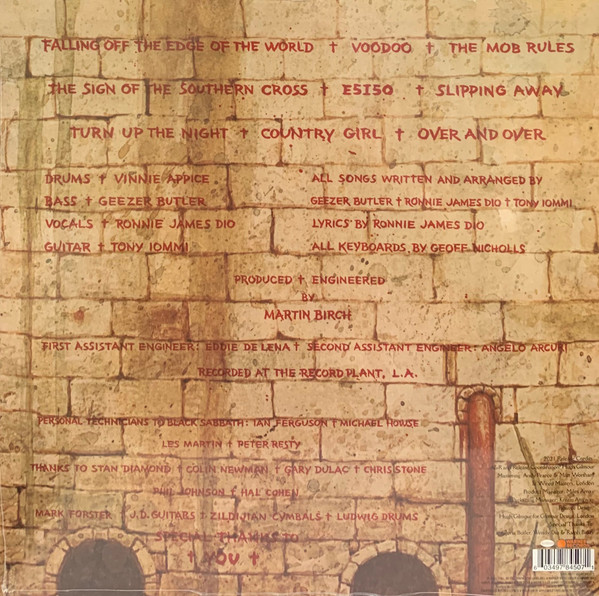 FALLING OFF THE EDGE OF THE WORLD † VOODOO † THE MOB RULES
THE SIGN OF THE SOUTHERN CROSS † E5150 † SLIPPING AWAY
TURN UP THE NIGHT † COUNTRY GIRL † OVER AND OVER
DRUMS † VINNIE APPICE
BASS † GEEZER BUTLER
VOCALS † RONNIE JAMES DIO
GUITAR † TONY IOMMI
ALL SONGS WRITTEN AND ARRANGED BY
GEEZER BUTLER † RONNIE JAMES DIO † TONY IOMMI
LYRICS BY RONNIE JAMES DIO
ALL KEYBOARDS BY GEOFF NICHOLLS
PRODUCED † ENGINEERED
BY
MARTIN BIRCH
FIRST ASSISTANT ENGINEER: EDDIE DE LENA † SECOND ASSISTANT ENGINEER: ANGELO ARCURI
RECORDED AT THE RECORD PLANT, L.A.
PERSONAL TECHNICIANS TO BLACK SABBATH: IAN FERGUSON † MICHAEL HOWSE
LES MARTIN † PETER RESTY
THANKS TO STAN DIAMOND † COLIN NEWMAN † GARY DULAC † CHRIS STONE
PHIL JOHNSON † HAL COHEN
MARK FORSTER † J.D. GUITARS † ZILDIJIAN CYMBALS † LUDWIG DRUMS
SPECIAL THANKS TO
† YOU †
6 03497 84507 1